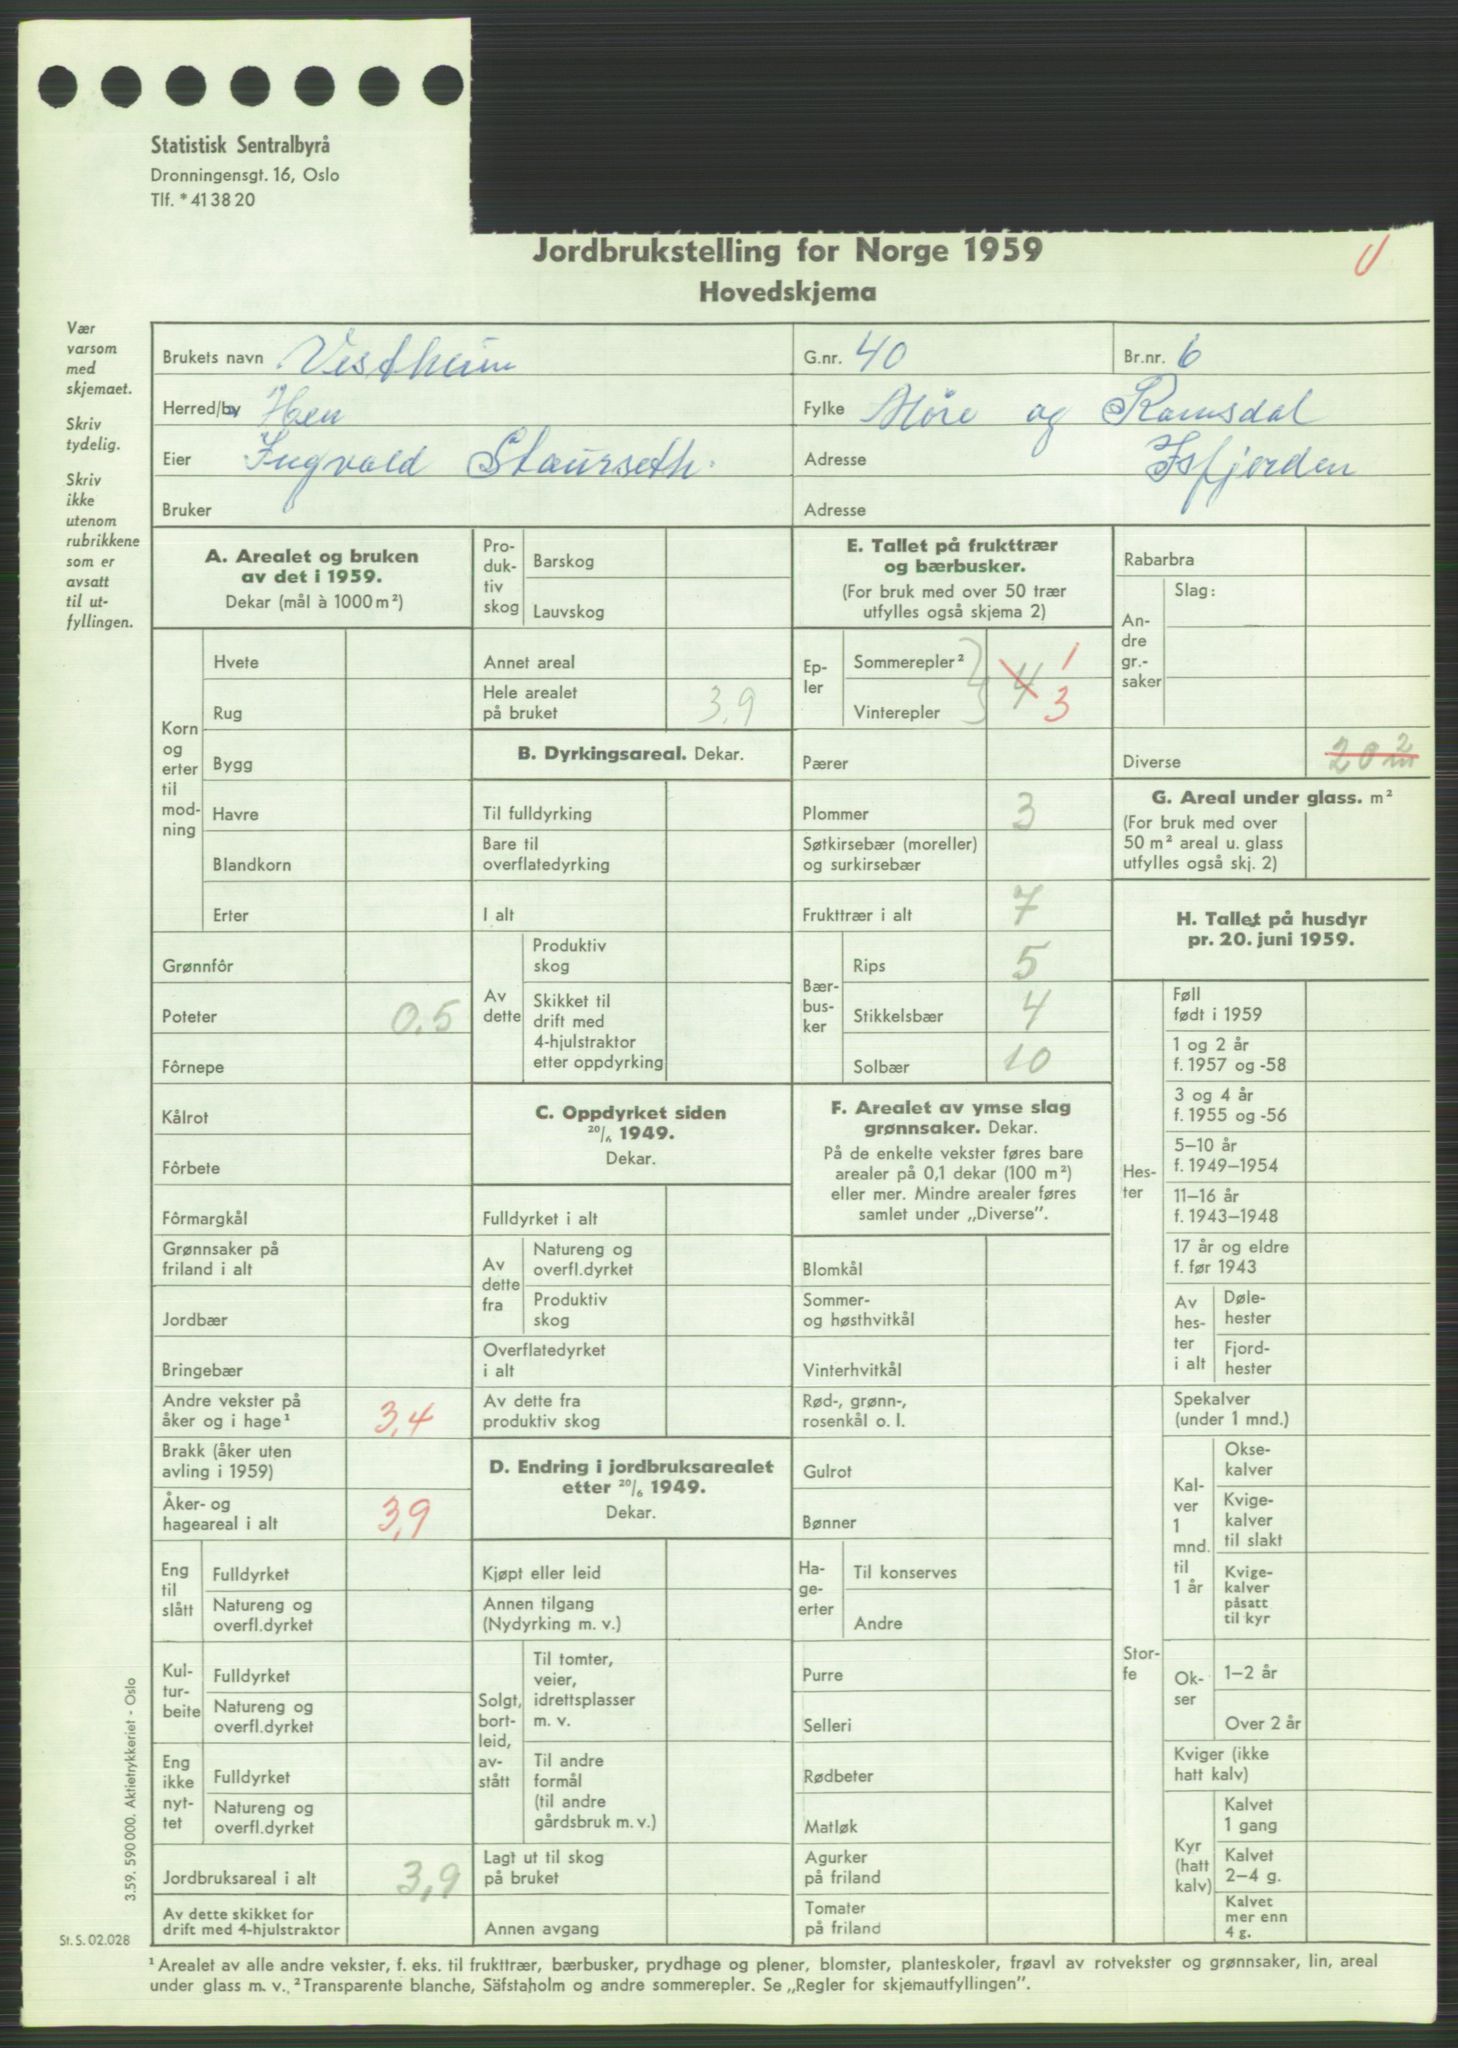 Statistisk Sentralbyrå
Dronningensgt. 16, Oslo
Tlf. * 41 38 20
Jordbrukstelling for Norge 1959
Hovedskjema
Vær
varsom
med
skjemaet.
Skriv
tydelig.
Skriv
ikke
utenom
rubrikkene
som er
avsatt
til ut-
fyllingen.
Brukets navn Vestheim
G.nr. 40
Br.nr. 6
Herred/by Hen
Fylke Møre og Romsdal
Eier Ingvald Staurseth.
Adresse Isfjorden
Bruker
Adresse
A. Arealet og bruken
av det i 1959.
Dekar (mål à 1000 m²)
Korn
og
erter
til
mod-
ning
Hvete
Rug
Bygg
Havre
Blandkorn
Erter
Grønnfôr
Poteter 0,5
Fôrnepe
Kålrot
Fôrbete
Fôrmargkål
Grønnsaker på
friland i alt
Jordbær
Bringebær
Andre vekster på
åker og i hage¹ 3,4
Brakk (åker uten
avling i 1959)
Åker- og
hageareal i alt 3,9
Eng
til
slått
Fulldyrket
Natureng og
overfl.dyrket
Kul-
tur-
beite
Fulldyrket
Natureng og
overfl.dyrket
Eng
ikke
nyt-
tet
Fulldyrket
Natureng og
overfl.dyrket
Jordbruksareal i alt 3,9
Av dette skikket for
drift med 4-hjulstraktor
Pro-
duk-
tiv
skog
Barskog
Lauvskog
Annet areal
Hele arealet
på bruket 3,9
B. Dyrkingsareal. Dekar.
Til fulldyrking
Bare til
overflatedyrking
I alt
Av
dette
Produktiv
skog
Skikket til
drift med
4-hjulstraktor
etter oppdyrking
C. Oppdyrket siden
20/6 1949.
Dekar.
Fulldyrket i alt
Av
dette
fra
Natureng og
overfl.dyrket
Produktiv
skog
Overflatedyrket
i alt
Av dette fra
produktiv skog
D. Endring i jordbruksarealet
etter 20/6 1949.
Dekar.
Kjøpt eller leid
Annen tilgang
(Nydyrking m. v.)
Solgt,
bort-
leid,
av-
stått
Til tomter,
veier,
idrettsplasser
m. v.
Til andre
formål
(til andre
gårdsbruk m. v.)
Lagt ut til skog
på bruket
Annen avgang
E. Tallet på frukttrær
og bærbusker.
(For bruk med over 50 trær
utfylles også skjema 2)
Ep-
ler
Sommerepler² 4 1
Vinterepler 3
Pærer
Plommer 3
Søtkirsebær (moreller)
og surkirsebær
Frukttrær i alt 7
Bær-
bus-
ker
Rips 5
Stikkelsbær 4
Solbær 10
F. Arealet av ymse slag
grønnsaker. Dekar.
På de enkelte vekster føres bare
arealer på 0,1 dekar (100 m²)
eller mer. Mindre arealer føres
samlet under „Diverse”.
Blomkål
Sommer-
og høsthvitkål
Vinterhvitkål
Rød-, grønn-,
rosenkål o. l.
Gulrot
Bønner
Ha-
ge-
erter
Til konserves
Andre
Purre
Selleri
Rødbeter
Matløk
Agurker
på friland
Tomater
på friland
Rabarbra
An-
dre
gr.-
saker
Slag:
Diverse 20 m²
G. Areal under glass. m²
(For bruk med over
50 m² areal u. glass
utfylles også skj. 2)
H. Tallet på husdyr
pr. 20. juni 1959.
Hes-
ter
Føll
født i 1959
1 og 2 år
f. 1957 og -58
3 og 4 år
f. 1955 og -56
5–10 år
f. 1949–1954
11–16 år
f. 1943–1948
17 år og eldre
f. før 1943
Av
hes-
ter
i alt
Døle-
hester
Fjord-
hester
Stor-
fe
Spekalver
(under 1 mnd.)
Kal-
ver
1
mnd.
til
1 år
Okse-
kalver
Kvige-
kalver
til slakt
Kvige-
kalver
påsatt
til kyr
Ok-
ser
1–2 år
Over 2 år
Kviger (ikke
hatt kalv)
Kyr
(hatt
kalv)
Kalvet
1 gang
Kalvet
2–4 g.
Kalvet
mer enn
4 g.
3.59. 590 000. Aktietrykkeriet - Oslo
St. S. 02.028
¹ Arealet av alle andre vekster, f. eks. til frukttrær, bærbusker, prydhage og plener, blomster, planteskoler, frøavl av rotvekster og grønnsaker, lin, areal
under glass m. v. ² Transparente blanche, Säfstaholm og andre sommerepler. Se „Regler for skjemautfyllingen”.